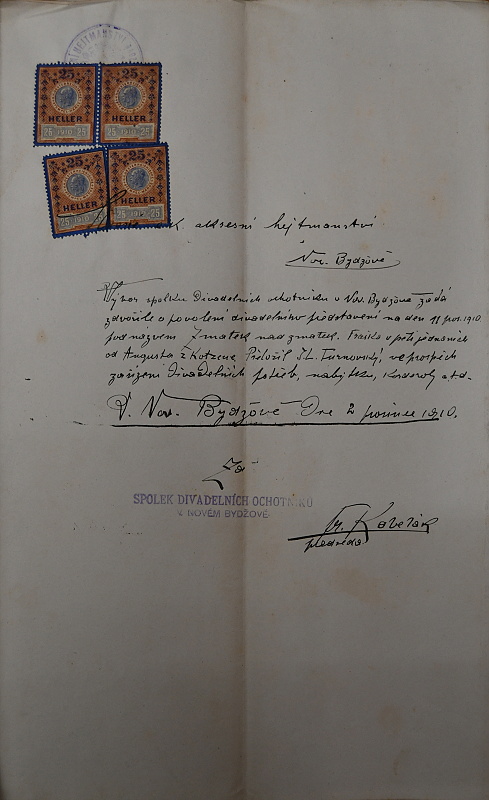 HEJTMANSTVÍ
25 25
HELLER HELLER
25 1910 25 25 1910 25
25 25
HELLER HELLER
25 1910 25 25 1910 25
k. okresní hejtmanství
Nov. Bydžově
Výbor spolku Divadelních ochotníku v Nov. Bydžově žádá
zdvořile o povolení divadelního představení na den 11 pros. 1910
pod názvem Zmatek nad zmatek. Fraška v pěti jednáních
od Augusta z Kotzene Přeložil J. L. Turnovský, ve prospěch
zařízení Divadelních potřeb, nábytku, atd.
V. Nov. Bydžově Dne 2 prosince 1910.
Za
SPOLEK DIVADELNÍCH OCHOTNÍKŮ
V NOVÉM BYDŽOVĚ
předseda